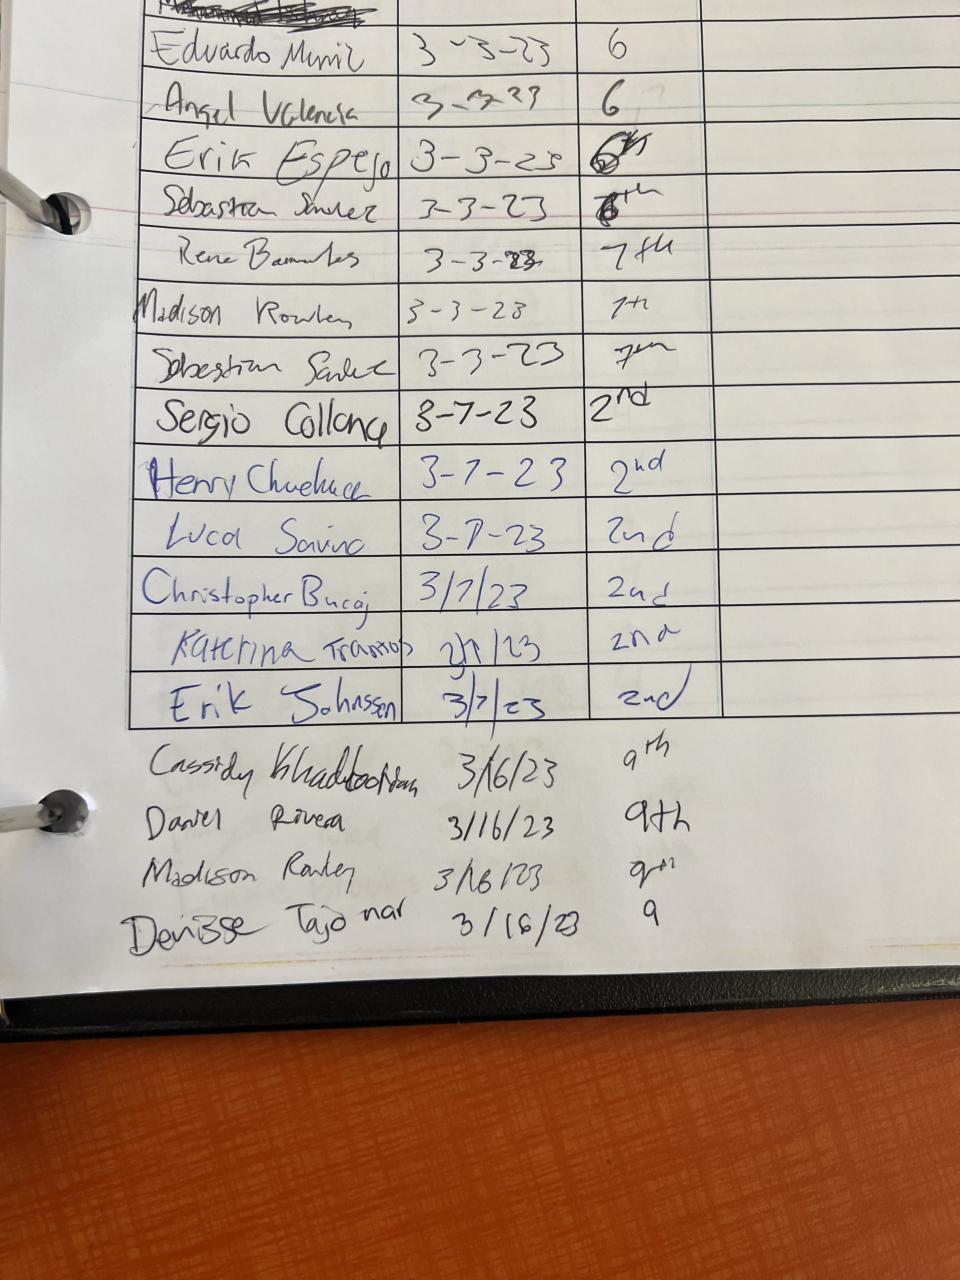 Eduardo Muniz 3-3-23 6
Angel Valencia 3-3-23 6
Erik Espejo 3-3-23 6th
Sebastian 3-3-23 6th
Rene 3-3-23 7th
Madison Rowley 3-3-23 7th
Sebastian 3-3-23 7th
Sergio 3-7-23 2nd
Henry 3-7-23 2nd
Luca Savino 3-7-23 2nd
Christopher Bucaj 3/7/23 2nd
Katerina /23 2nd
Erik Johnssen 3/7/23 2nd
Cassidy 3/16/23 9th
Daniel Rivera 3/16/23 9th
Madison Rowley 3/16/23 9th
Denisse Tajonar 3/16/23 9